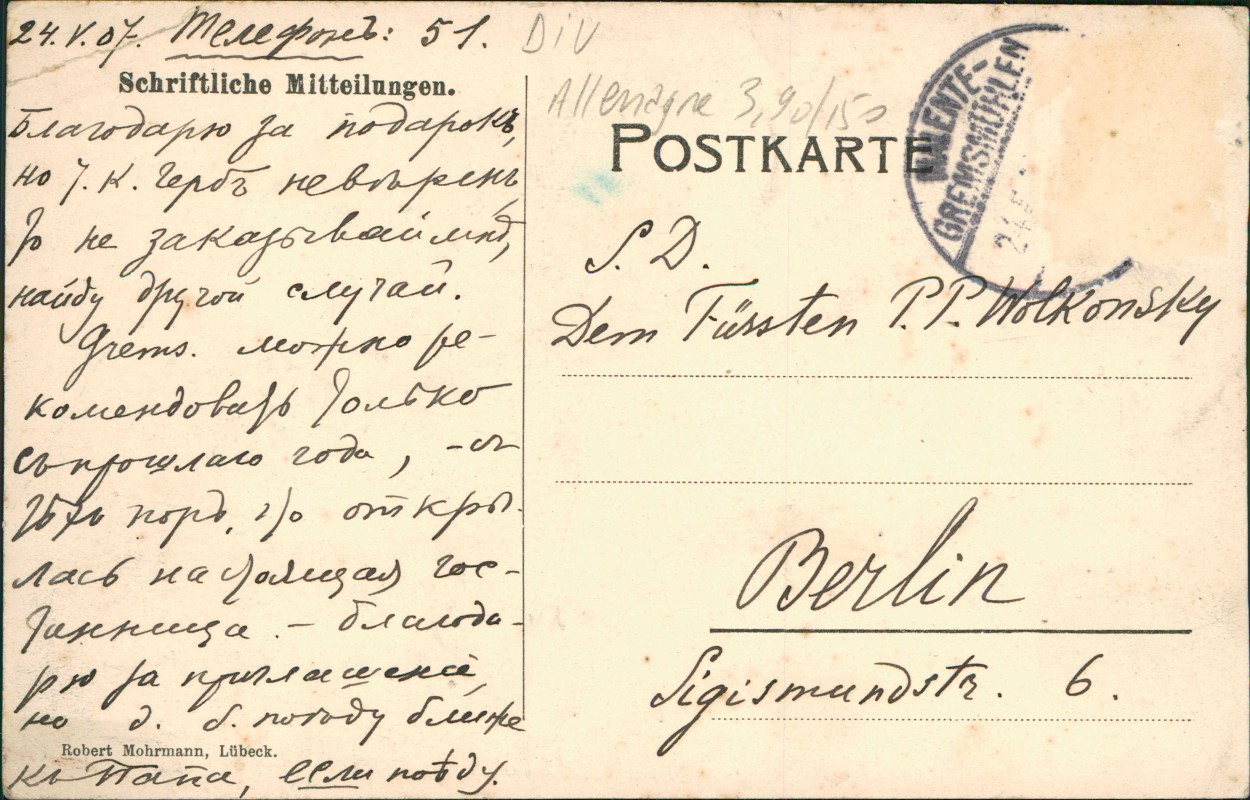 24.V.07. Телефонъ: 51.
Schriftliche Mitteilungen.
Благодарю за подарокъ,
но т. к. гербъ невѣренъ
то не заказывай мнѣ,
найду другой случай.
Grems. можно ре-
комендовать только
съ прошлаго года, – съ
тѣхъ поръ, что откры-
лась настоящая гос-
тинница. – Благода-
рю за приглашеніе,
но д. б. поѣду ближе
Robert Mohrmann, Lübeck.
къ Папа, если поѣду.
Div
Allemagne 3,90/150
POSTKARTE
MALENTE-
GREMSMÜHLEN
24.5
S. D.
Dem Fürsten P. P. Wolkonsky
Berlin
Sigismundstr. 6.